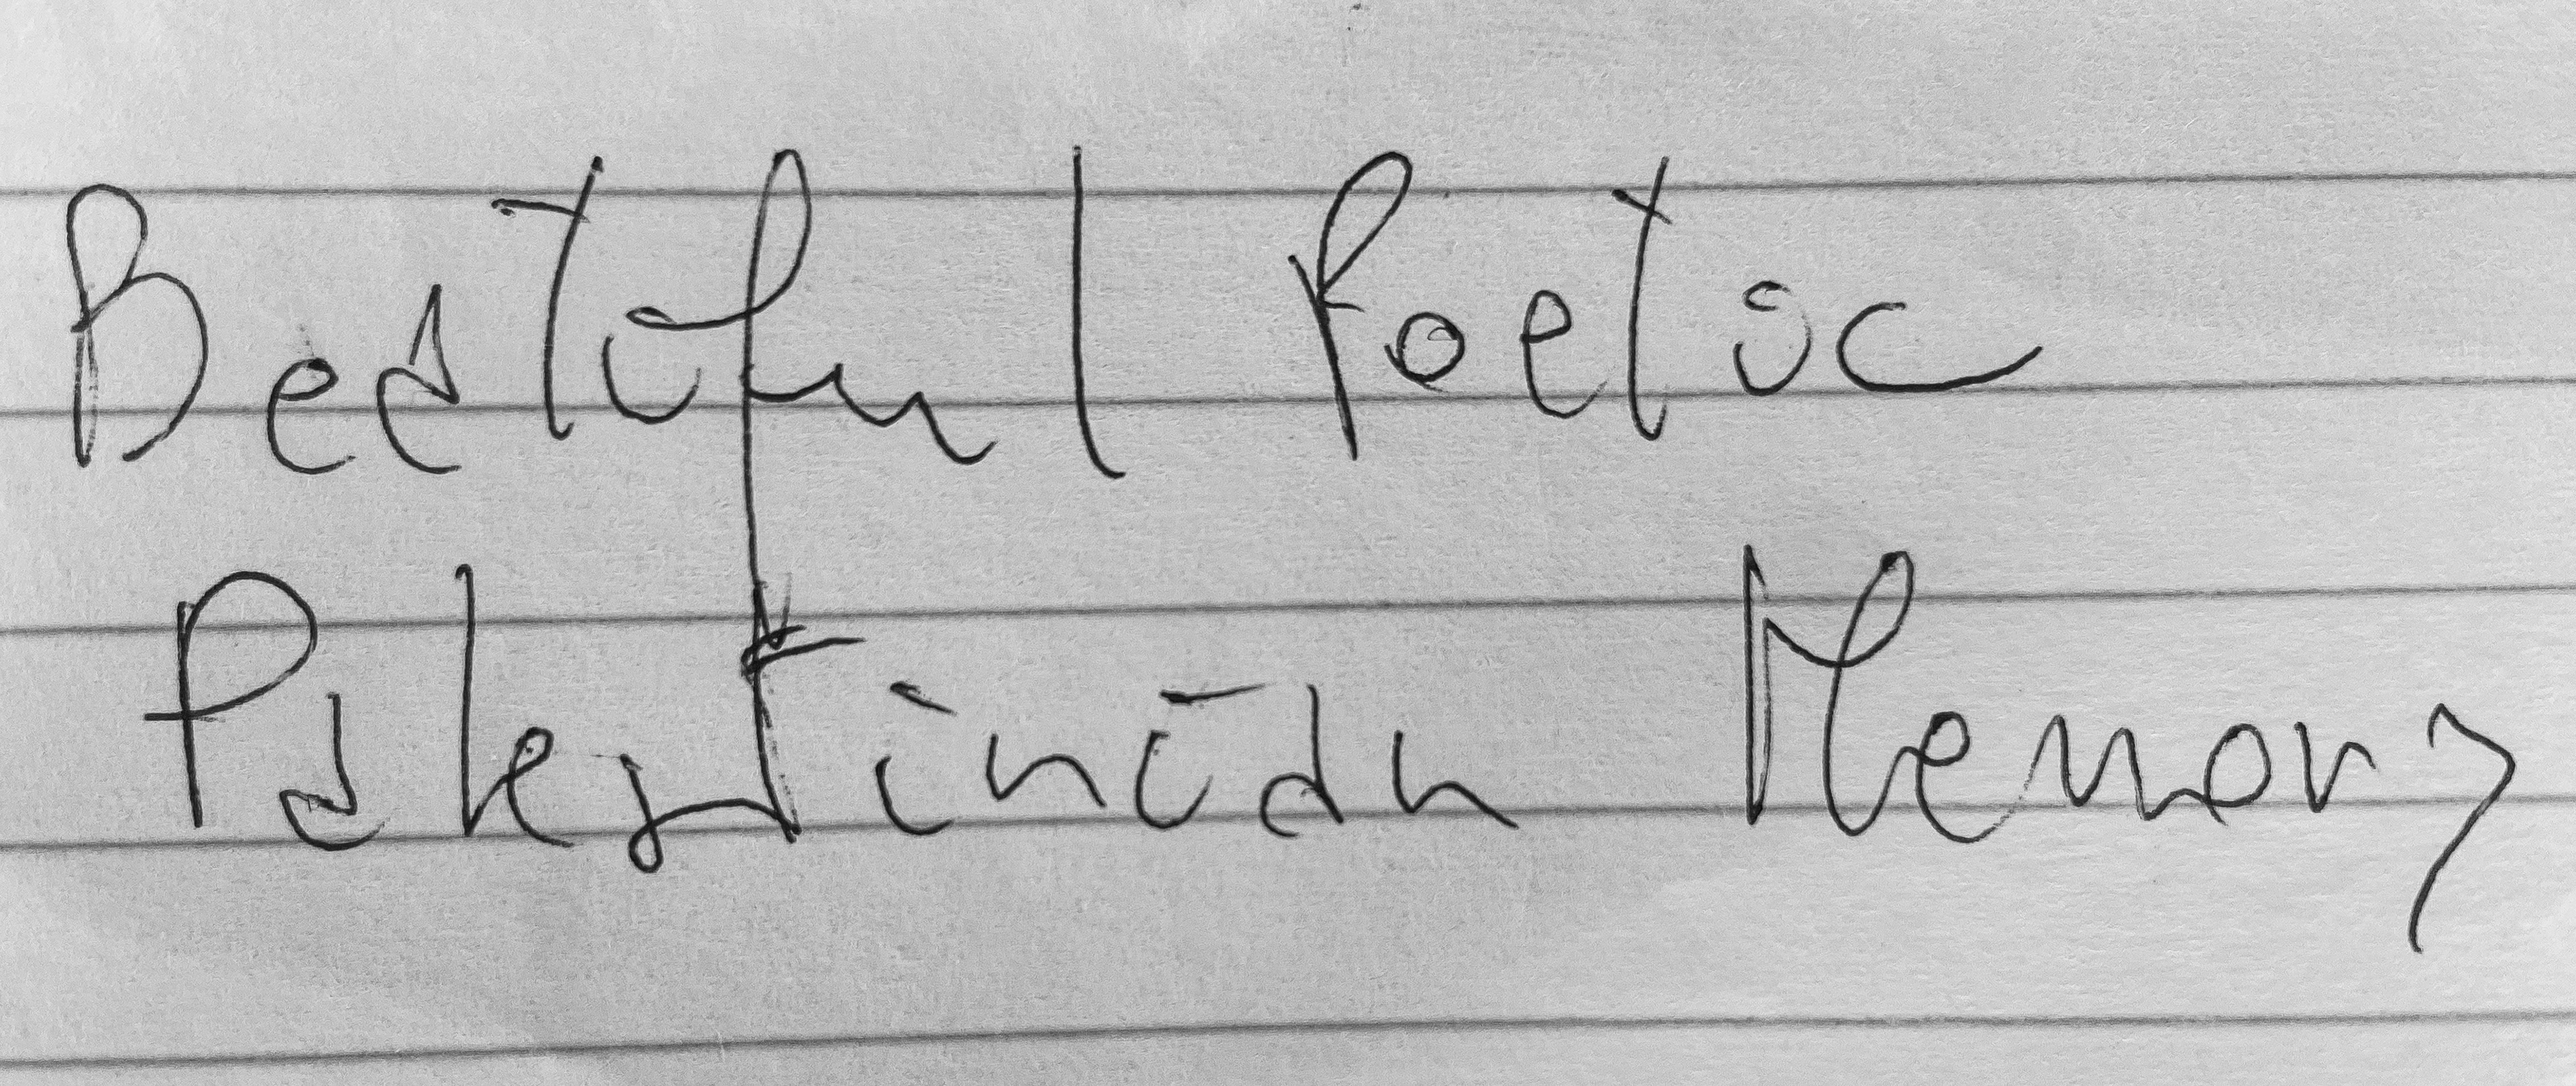 Beatiful Poetic
Palestinian Memory